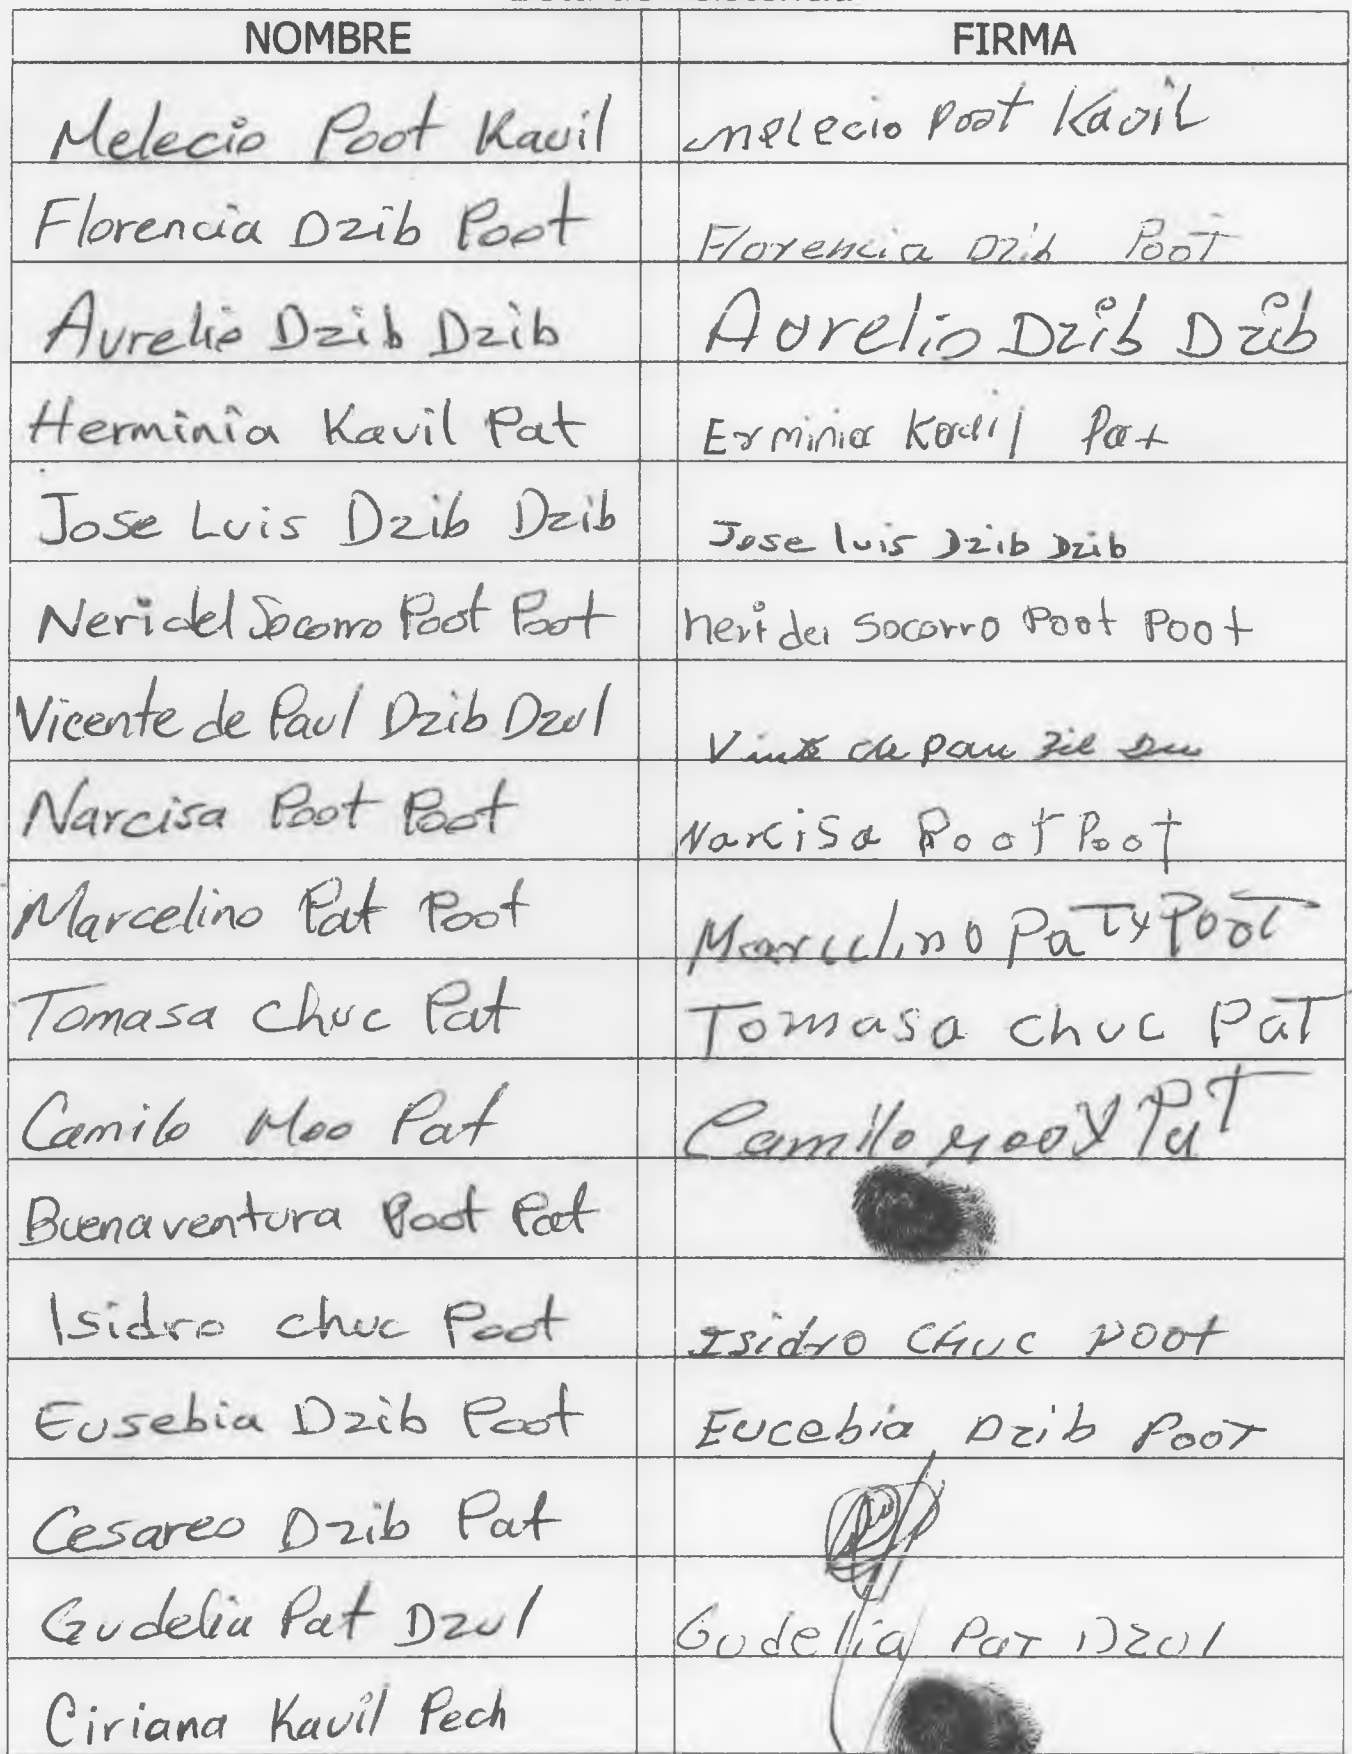 NOMBRE FIRMA
Melecio Poot Kauil melecio Poot Kauil
Florencia Dzib Poot Florencia Dzib Poot
Aurelio Dzib Dzib Aurelio Dzib Dzib
Herminia Kauil Pat Erminia Kauil Pat
Jose Luis Dzib Dzib Jose luis Dzib Dzib
Neri del Socorro Poot Poot neri del Socorro Poot Poot
Vicente de Paul Dzib Dzul de pau
Narcisa Poot Poot Narcisa Poot Poot
Marcelino Pat Poot Marcelino Pat y Poot
Tomasa Chuc Pat Tomasa chuc Pat
Camilo Moo Pat Camilo Moo y Pat
Buenaventura Poot Pat
Isidro chuc Poot Isidro chuc Poot
Eusebia Dzib Poot Eucebia Dzib Poot
Cesareo Dzib Pat
Gudelia Pat Dzul Gudellia Pat Dzul
Ciriana Kauil Pech